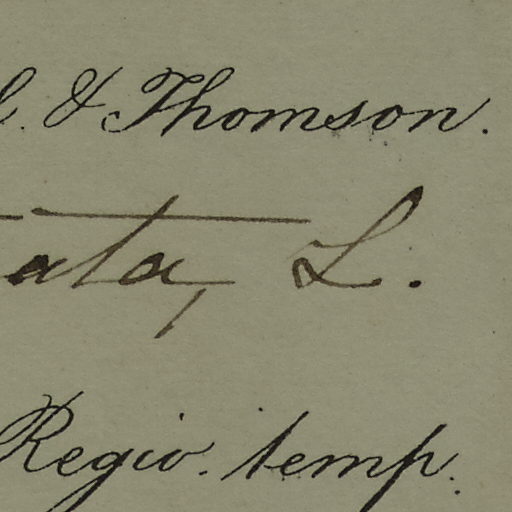 l. & Thomson.
ata, L.
Regio. temp.